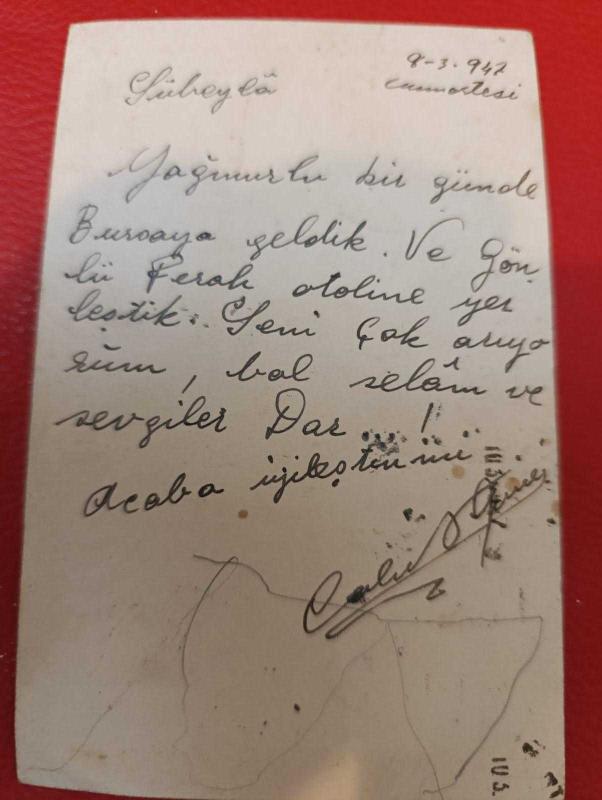 8-3-947
cumartesi
Sübeylâ
Yağmurlu bir günde
Bursaya geldik. Ve Gön
lü Ferah otoline yer
leştik. Seni çok arıyo
rum, bol selâm ve
sevgiler Dar...!
Acaba iyileştin mi
10 3.